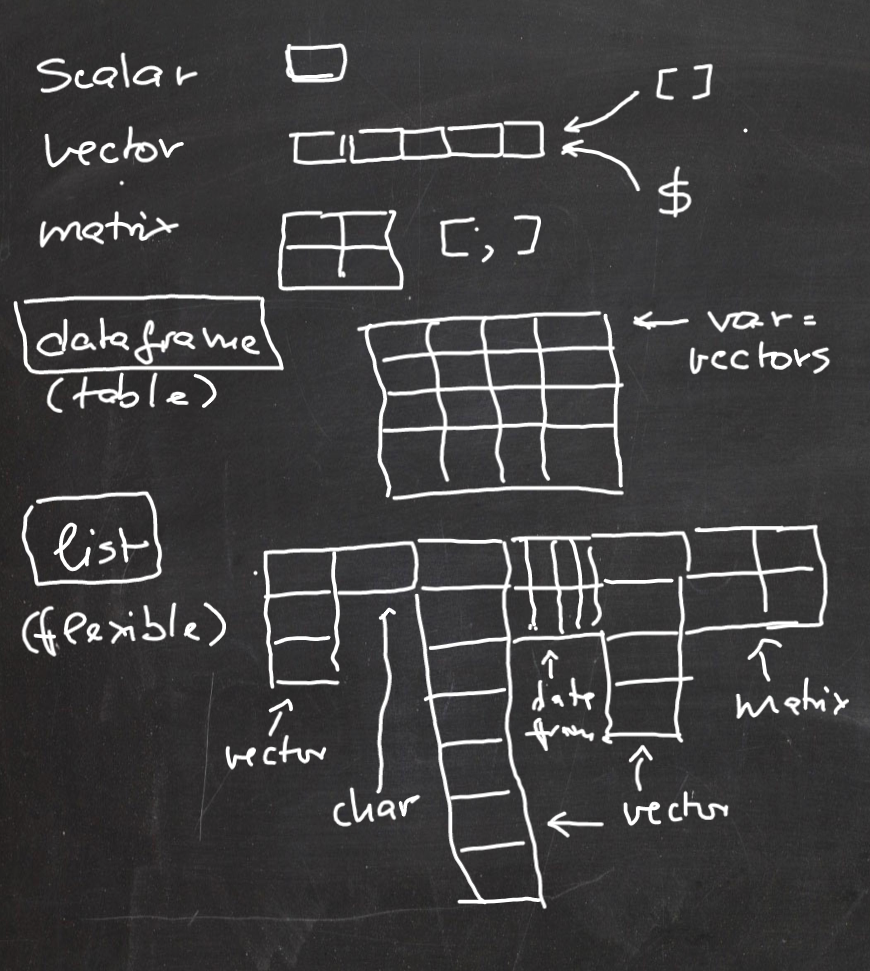 Scalar
[ ]
vector
$
matrix
[ ; ]
dataframe
(table)
← var =
vectors
list
(flexible)
vector
char
data
fram
vector
matrix